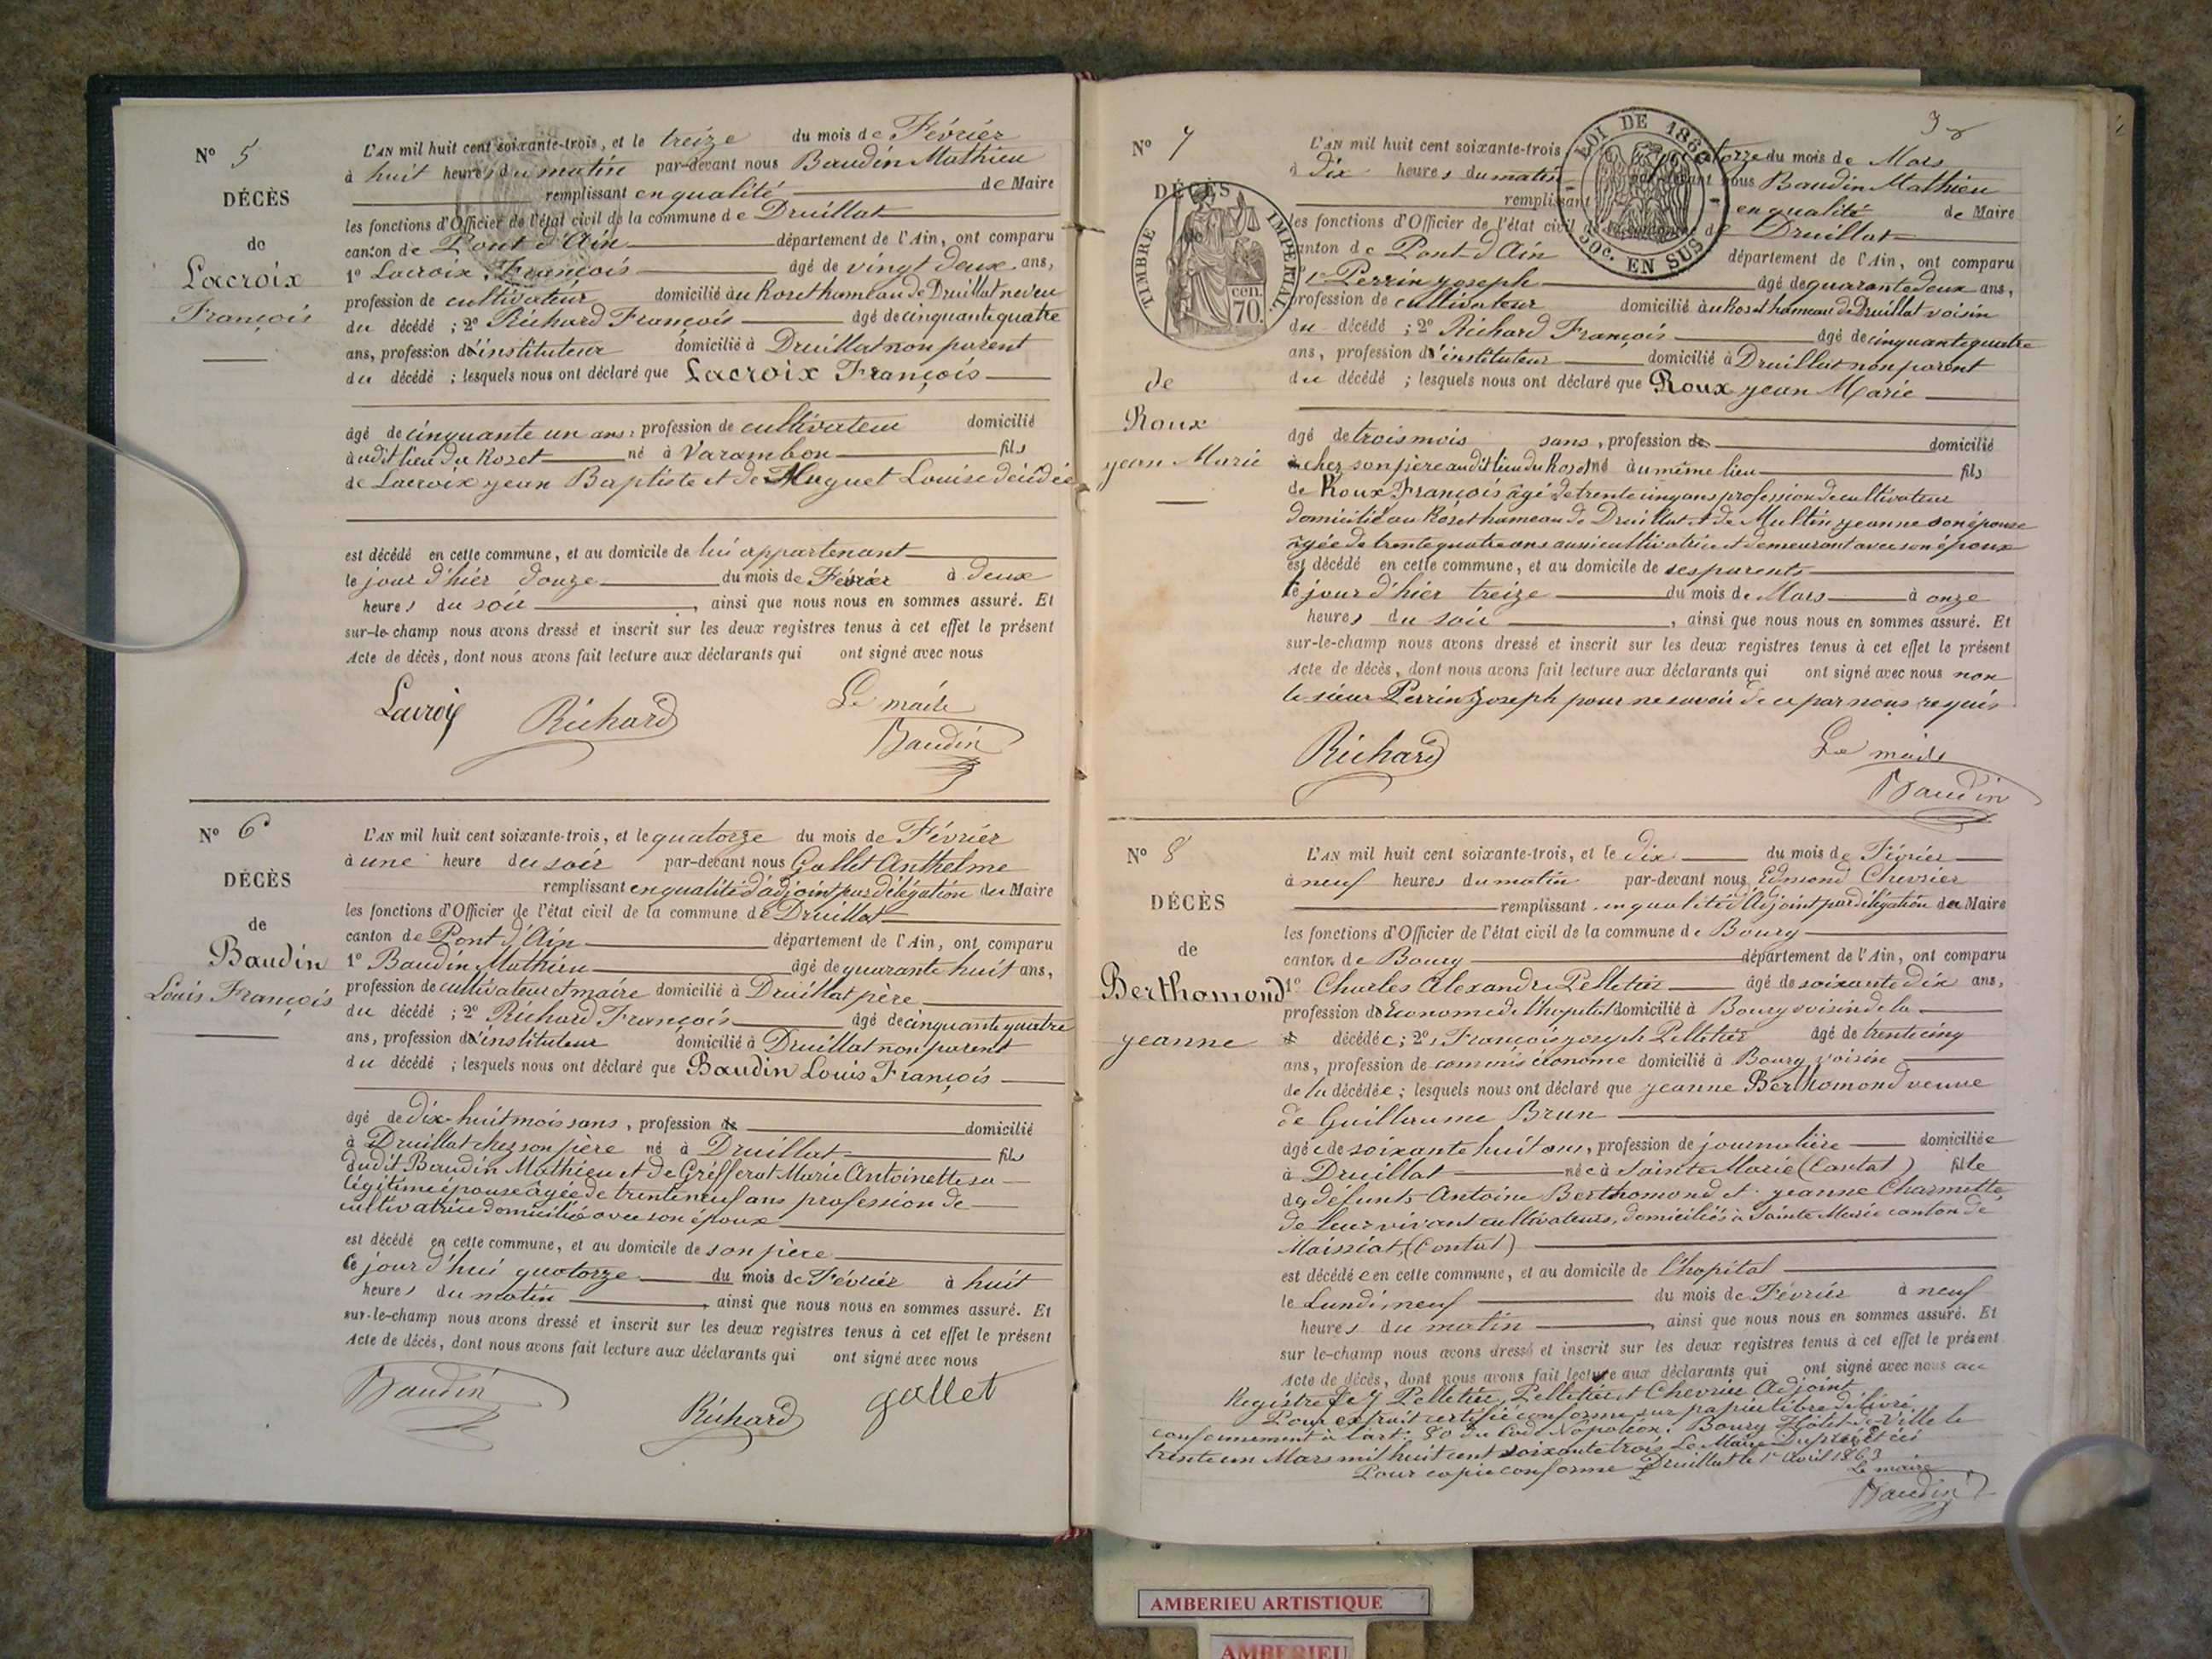 N° 5
DÉCÈS
de
Lacroix
François
L'AN mil huit cent soixante-trois, et le treize du mois de Février
à huit heures du matin par-devant nous Baudin Mathieu
remplissant en qualité de Maire
les fonctions d'Officier de l'état civil de la commune de Druillat
canton de Pont d'Ain département de l'Ain, ont comparu
1° Lacroix, François âgé de vingt deux ans,
profession de cultivateur domicilié au Roset hameau de Druillat neveu
du décédé ; 2° Richard François âgé de cinquante quatre
ans, profession d'instituteur domicilié à Druillat non parent
du décédé ; lesquels nous ont déclaré que Lacroix François
âgé de cinquante un ans, profession de cultivateur domicilié
audit lieu du Roset né à Varambon fils
de Lacroix jean Baptiste et de Huguet Louise décédés
est décédé en cette commune, et au domicile de lui appartenant
le jour d'hier douze du mois de Février à deux
heures du soir , ainsi que nous nous en sommes assuré. Et
sur-le-champ nous avons dressé et inscrit sur les deux registres tenus à cet effet le présent
Acte de décès, dont nous avons fait lecture aux déclarants qui ont signé avec nous
Lacroix Richard Le maire
Baudin
N° 6
DÉCÈS
de
Baudin
Louis François
L'AN mil huit cent soixante-trois, et le quatorze du mois de Février
à une heure du soir par-devant nous Gallet Anthelme
remplissant en qualité d'adjoint par délégation du Maire
les fonctions d'Officier de l'état civil de la commune de Druillat
canton de Pont d'Ain département de l'Ain, ont comparu
1° Baudin Mathieu âgé de quarante huit ans,
profession de cultivateur et maire domicilié à Druillat père
du décédé ; 2° Richard François âgé de cinquante quatre
ans, profession d'instituteur domicilié à Druillat non parent
du décédé ; lesquels nous ont déclaré que Baudin Louis François
âgé de dix-huit mois sans, profession de domicilié
à Druillat chez son père né à Druillat fils
dudit Baudin Mathieu et de Grefferat Marie Antoinette sa
légitime épouse âgée de trente neuf ans profession de
cultivatrice domiciliée avec son époux
est décédé en cette commune, et au domicile de son père
ce jour d'hui quatorze du mois de Février à huit
heures du matin , ainsi que nous nous en sommes assuré. Et
sur-le-champ nous avons dressé et inscrit sur les deux registres tenus à cet effet le présent
Acte de décès, dont nous avons fait lecture aux déclarants qui ont signé avec nous
Baudin Richard gallet
N° 7
DÉCÈS
TIMBRE IMPÉRIAL
70 cen.
de
Roux
jean Marie
LOI DE 1862
50c. EN SUS
L'AN mil huit cent soixante-trois quatorze du mois de Mars
à dix heures du matin par-devant nous Baudin Mathieu
remplissant en qualité de Maire
les fonctions d'Officier de l'état civil de la commune de Druillat
canton de Pont-d'Ain département de l'Ain, ont comparu
1° Perrin joseph âgé de quarante deux ans,
profession de cultivateur domicilié au Roset hameau de Druillat voisin
du décédé ; 2° Richard François âgé de cinquante quatre
ans, profession d'instituteur domicilié à Druillat non parent
du décédé ; lesquels nous ont déclaré que Roux jean Marie
âgé de trois mois sans, profession de domicilié
à chez son père audit lieu du Roset né au même lieu fils
de Roux François âgé de trente cinq ans profession de cultivateur
domicilié au Roset hameau de Druillat et de Multin jeanne son épouse
âgée de trente quatre ans aussi cultivatrice et demeurant avec son époux
est décédé en cette commune, et au domicile de ses parents
le jour d'hier treize du mois de Mars à onze
heures du soir , ainsi que nous nous en sommes assuré. Et
sur-le-champ nous avons dressé et inscrit sur les deux registres tenus à cet effet le présent
Acte de décès, dont nous avons fait lecture aux déclarants qui ont signé avec nous non
le sieur Perrin joseph pour ne savoir de ce par nous requis
Richard Le maire
Baudin
N° 8
DÉCÈS
de
Berthomond
jeanne
L'AN mil huit cent soixante-trois, et le dix du mois de Février
à neuf heures du matin par-devant nous Edmond Chevrier
remplissant en qualité d'Adjoint par délégation du Maire
les fonctions d'Officier de l'état civil de la commune de Bourg
canton de Bourg département de l'Ain, ont comparu
1° Charles Alexandre Pelletier âgé de soixante dix ans,
profession d'économe de l'hopital domicilié à Bourg voisin de la
décédée ; 2° François joseph Pelletier âgé de trente cinq
ans, profession de commis économe domicilié à Bourg voisin
de la décédée ; lesquels nous ont déclaré que jeanne Berthomond veuve
de Guillaume Brun
âgée de soixante huit ans, profession de journalière domiciliée
à Druillat née à Sainte Marie (Cantal) fille
de défunts Antoine Berthomond et jeanne Charmette
de leur vivant cultivateurs, domiciliés à Sainte Marie canton de
(Cantal)
est décédée en cette commune, et au domicile de l'hopital
le Lundi neuf du mois de Février à neuf
heures du matin , ainsi que nous nous en sommes assuré. Et
sur le-champ nous avons dressé et inscrit sur les deux registres tenus à cet effet le présent
Acte de décès, dont nous avons fait lecture aux déclarants qui ont signé avec nous au
Registre Pelletier, Pelletier et Chevrier Adjoint
Pour extrait certifié conforme sur papier libre délivré
conformément à l'art. 80 du Code Napoléon. Bourg Hôtel de Ville le
trente un Mars mil huit cent soixante trois Le Maire
Pour copie conforme Druillat le 1er Avril 1863
Le maire
Baudin
AMBERIEU ARTISTIQUE
AMBERIEU